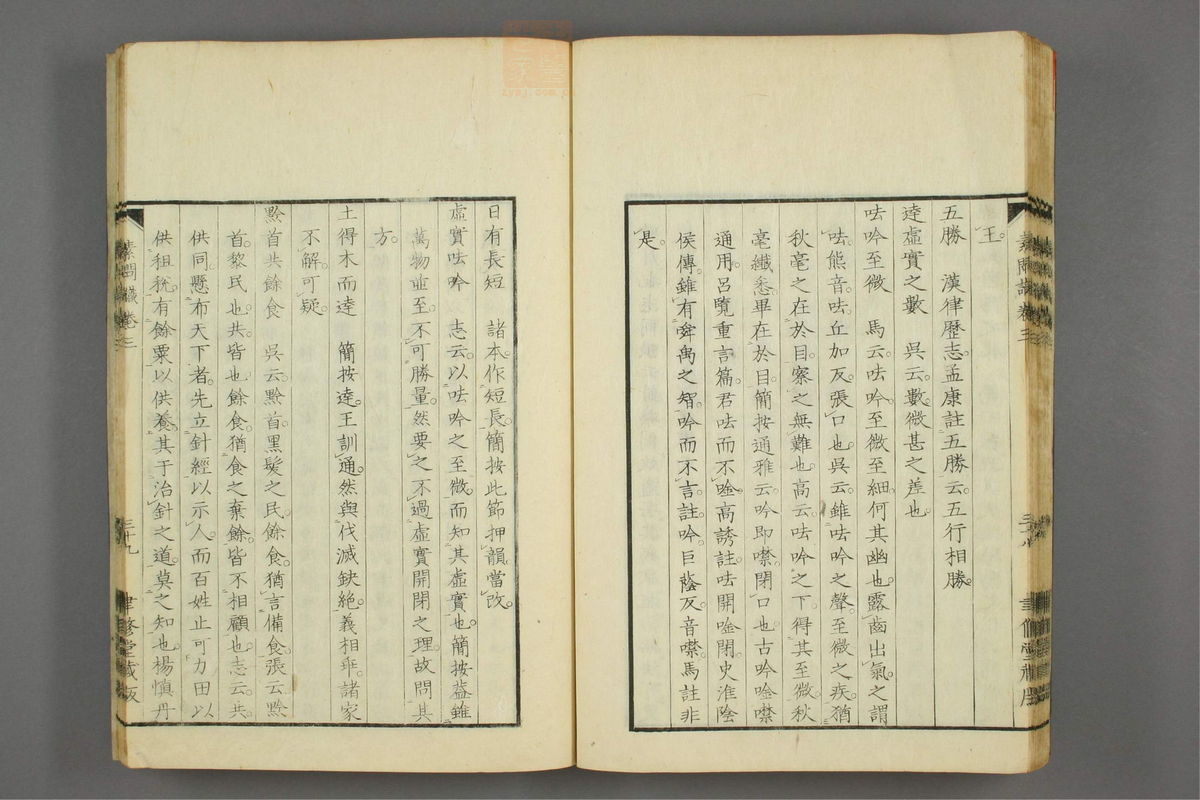 王。
五勝　漢律歷志。孟康註五勝云五行相勝。
逵虛實之數　吳云。數。微甚之差也。
呿吟至微　馬云。呿吟。至微至細。何其幽也。露齒出氣。之謂
呿。熊音。呿。丘加反。張口也。吳云。雖呿吟之聲。至微之疾。猶
秋毫之在於目。察之無難也。高云。呿吟之下。得其至微。秋
毫纖悉畢在於目。簡按通雅云。吟即噤。閉口也。古吟唫噤
通用。呂覽重言篇。君呿而不唫。高誘註。呿開唫閉。史淮陰
侯傳。雖有舜禹之智。吟而不言。註。吟。巨蔭反。音噤。馬註非
是。
素問識卷三
三十八
日有長短　諸本。作短長。簡按此節押韻。當改。
虛實呿吟　志云。以呿吟之至微。而知其虛實也。簡按蓋雖
萬物並至。不可勝量。然要之。不過虛實開閉之理。故問其
方。
土得木而達　簡按達。王訓通。然與伐滅缺絶。義相乖。諸家
不解。可疑。
黔首共餘食　吳云。黔首。黑髮之民。餘食。猶言備食。張云。黔
首。黎民也。共。皆也。餘食。猶食之棄餘。皆不相顧也。志云。共。
供同。懸布天下者。先立針經。以示人。而百姓止可力田以
供租稅。有餘粟以供養。其于治針之道。莫之知也。楊慎丹
素問識卷三
三十九
聿修堂藏版